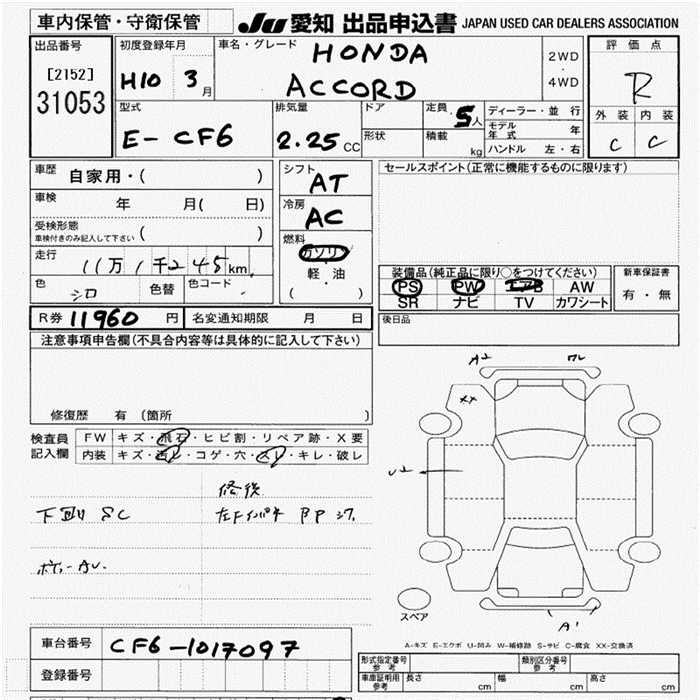 車内保管・守衛保管
JU 愛知 出品申込書 JAPAN USED CAR DEALERS ASSOCIATION
出品番号
[2152]
31053
初度登録年月
H10 3 月
車名・グレード
HONDA
ACCORD
2WD
・
4WD
評価点
R
外装 内装
C C
型式
E-CF6
排気量
2.25 CC
ドア
形状
定員 5人
積載 kg
ディーラー・並行
モデル年式 年
ハンドル 左・右
車歴 自家用・( )
車検 年 月( 日)
受検形態
車検付きのみ記入して下さい ( )
走行 11万1千245km
色 シロ 色替 色コード
シフト AT
冷房 AC
燃料
ガソリン
軽・油
( )
セールスポイント(正常に機能するものに限ります)
装備品(純正品に限り○をつけてください)
PS PW エアB AW
SR ナビ TV カワシート
新車保証書
有・無
R券 11960 円 名変通知期限 月 日
後日品
注意事項申告欄(不具合内容等は具体的に記入して下さい)
修復歴 有 (箇所 )
検査員記入欄
FW キズ・飛石・ヒビ割・リペア跡・X要
内装 キズ・汚レ・コゲ・穴・スレ・キレ・破レ
下回り SC
修後
A2
XX
U2
A1
スペア
A-キズ E-エクボ U-凹み W-補修跡 S-サビ C-腐食 XX-交換済
車台番号 CF6-1017097
登録番号
形式指定番号 参考
類別区分番号 参考
車庫証明用 参考 長さ cm 幅 cm 高さ cm